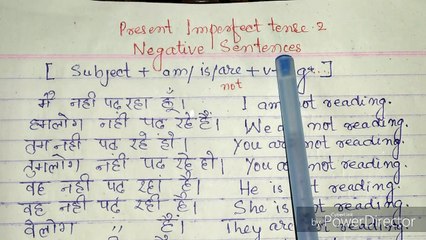 Present Imperfect tense 2
Negative Sentences
[ Subject + am/is/are + v
not
मैं नहीं पढ़ रहा हूँ। I am not reading.
हमलोग नहीं पढ़ रहे हैं। We not reading.
तुम नहीं पढ़ रहे हो। You are not reading.
तुमलोग नहीं पढ़ रहे हो। You are not reading.
वह नहीं पढ़ रहा है। He is reading.
वह नहीं पढ़ रही है। She is reading.
वेलोग " हैं। They are reading.
PowerDirector